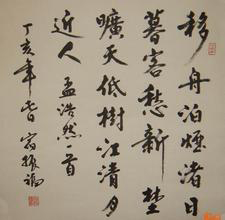 移舟泊煙渚日
暮客愁新埜
曠天低樹江清月
近人 孟浩然一首
丁亥年